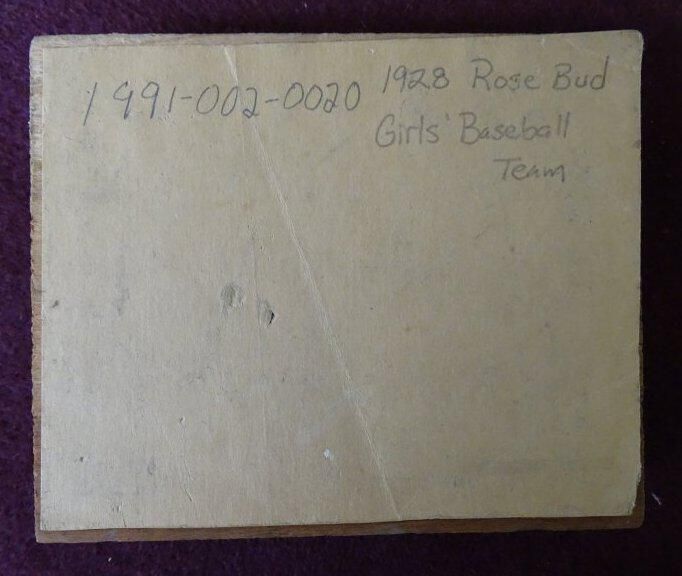 1991-002-0020 1928 Rose Bud
Girls' Baseball
Team